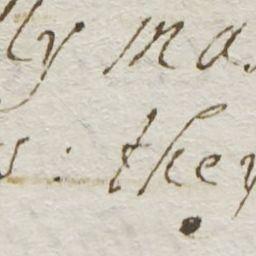 ly ma
s: they